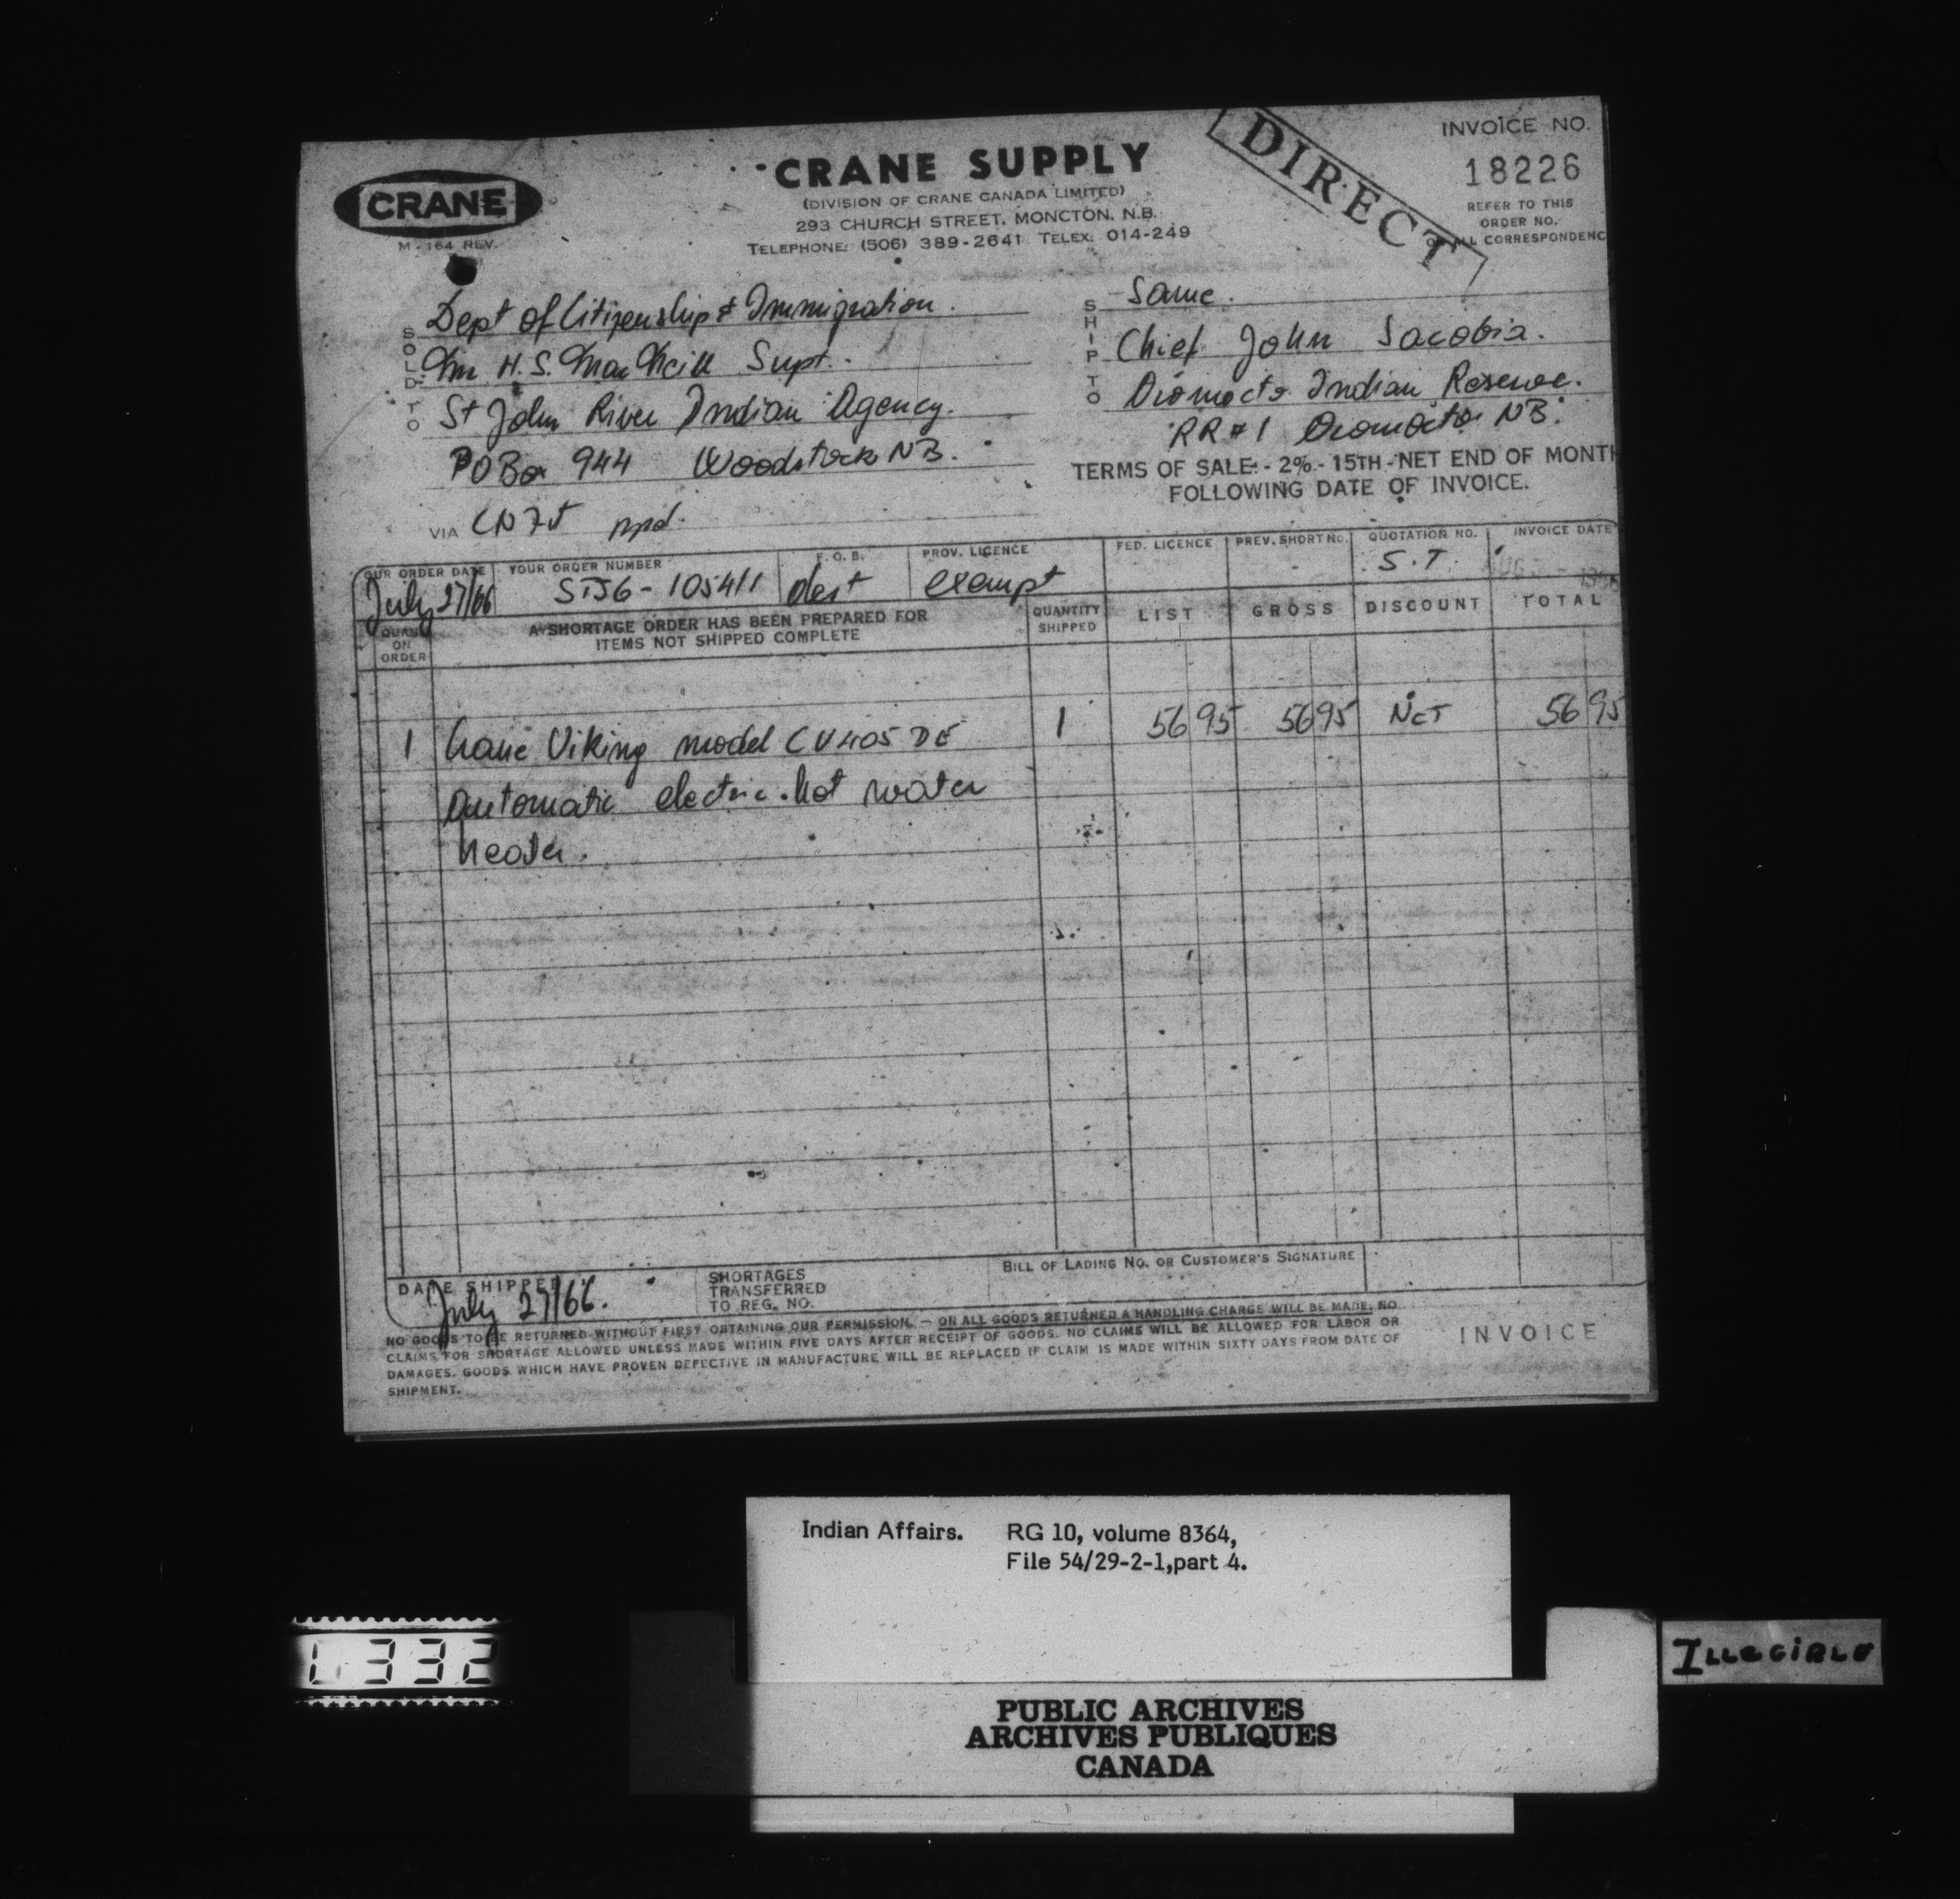 CRANE
M-164 REV.
CRANE SUPPLY
(DIVISION OF CRANE CANADA LIMITED)
293 CHURCH STREET, MONCTON, N.B.
TELEPHONE: (506) 389-2641 TELEX: 014-249
DIRECT
INVOICE NO.
18226
REFER TO THIS
ORDER NO.
ALL CORRESPONDENC
SOLD TO
Dept of Citizenship & Immigration.
Mr H.S. MacNeill Supt.
St John River Indian Agency.
PO Box 944 Woodstock NB.
SHIP TO
Same.
Chief John Sacobia.
Oromocto Indian Reserve.
RR#1 Oromocto NB.
TERMS OF SALE: - 2% - 15TH - NET END OF MONTH
FOLLOWING DATE OF INVOICE.
VIA ppd.
OUR ORDER DATE YOUR ORDER NUMBER F.O.B. PROV. LICENCE FED. LICENCE PREV. SHORT NO. QUOTATION NO. INVOICE DATE
July 27/66 STJ6-105411 dest exempt S.T.
QUAN. ON ORDER A SHORTAGE ORDER HAS BEEN PREPARED FOR QUANTITY SHIPPED LIST GROSS DISCOUNT TOTAL
ITEMS NOT SHIPPED COMPLETE
1 Crane Viking model CV405 DE 1 56 95 56 95 Net 56 95
Automatic electric hot water
heater.
DATE SHIPPED SHORTAGES TRANSFERRED TO REG. NO. BILL OF LADING NO. OR CUSTOMER'S SIGNATURE
July 27/66.
NO GOODS TO BE RETURNED WITHOUT FIRST OBTAINING OUR PERMISSION. — ON ALL GOODS RETURNED A HANDLING CHARGE WILL BE MADE. NO
CLAIMS FOR SHORTAGE ALLOWED UNLESS MADE WITHIN FIVE DAYS AFTER RECEIPT OF GOODS. NO CLAIMS WILL BE ALLOWED FOR LABOR OR
DAMAGES. GOODS WHICH HAVE PROVEN DEFECTIVE IN MANUFACTURE WILL BE REPLACED IF CLAIM IS MADE WITHIN SIXTY DAYS FROM DATE OF
SHIPMENT.
INVOICE
Indian Affairs. RG 10, volume 8364,
File 54/29-2-1,part 4.
332
ILLEGIBLE
PUBLIC ARCHIVES
ARCHIVES PUBLIQUES
CANADA